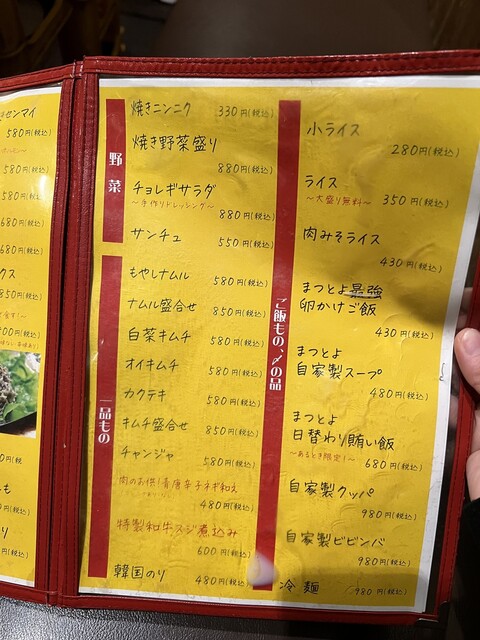 センマイ
580円(税込)
580円(税込)
580円(税込)
680円(税込)
680円(税込)
850円(税込)
野菜
焼きニンニク 330円(税込)
焼き野菜盛り
880円(税込)
チョレギサラダ
〜手作りドレッシング〜
880円(税込)
サンチュ 550円(税込)
一品もの
もやしナムル 580円(税込)
ナムル盛合せ 850円(税込)
白菜キムチ 580円(税込)
オイキムチ 580円(税込)
カクテキ 580円(税込)
キムチ盛合せ 850円(税込)
チャンジャ 580円(税込)
肉のお供!青唐辛子ネギ和え
480円(税込)
特製和牛スジ煮込み
600円(税込)
韓国のり 480円(税込)
ご飯もの、〆の品
小ライス
280円(税込)
ライス
〜大盛り無料〜 350円(税込)
肉みそライス
430円(税込)
まつとよ最強
卵かけご飯
430円(税込)
まつとよ
自家製スープ
480円(税込)
まつとよ
日替わり賄い飯
〜あるとき限定!〜 680円(税込)
自家製クッパ
980円(税込)
自家製ビビンバ
980円(税込)
冷麺 980円(税込)